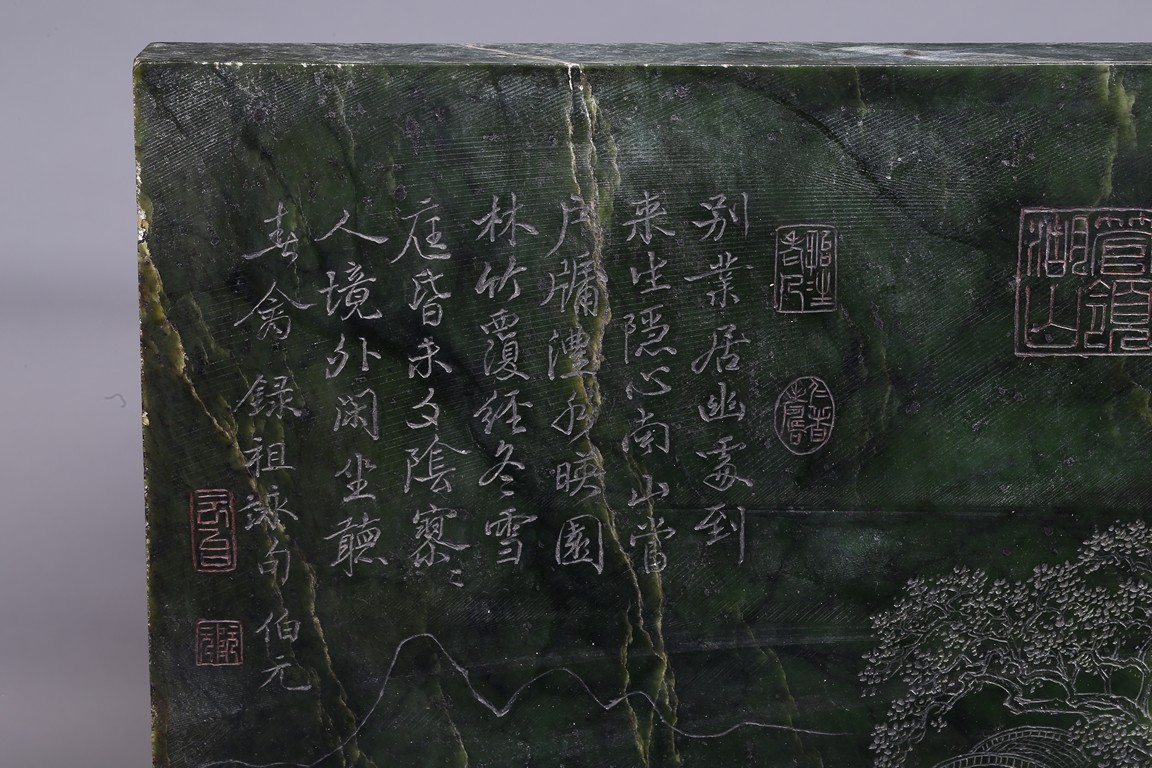 管領湖山
别業居幽處到
来生隱心南山當
戶牖澧水映園
林竹覆經冬雪
庭昏未夕陰寥〻
人境外閑坐聽
春禽錄祖詠句 伯元